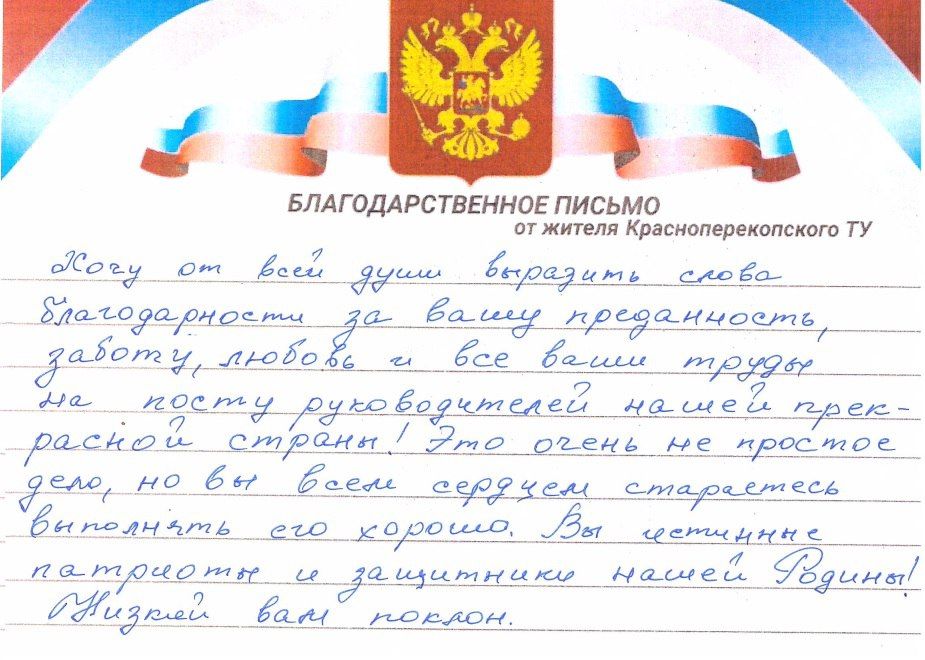 БЛАГОДАРСТВЕННОЕ ПИСЬМО
от жителя Красноперекопского ТУ
Хочу от всей души выразить слова
благодарности за вашу преданность,
заботу, любовь и все ваши труды
на посту руководителей нашей прек-
расной страны! Это очень не простое
дело, но вы всем сердцем стараетесь
выполнять его хорошо. Вы истинные
патриоты и защитники нашей Родины!
Низкий вам поклон.